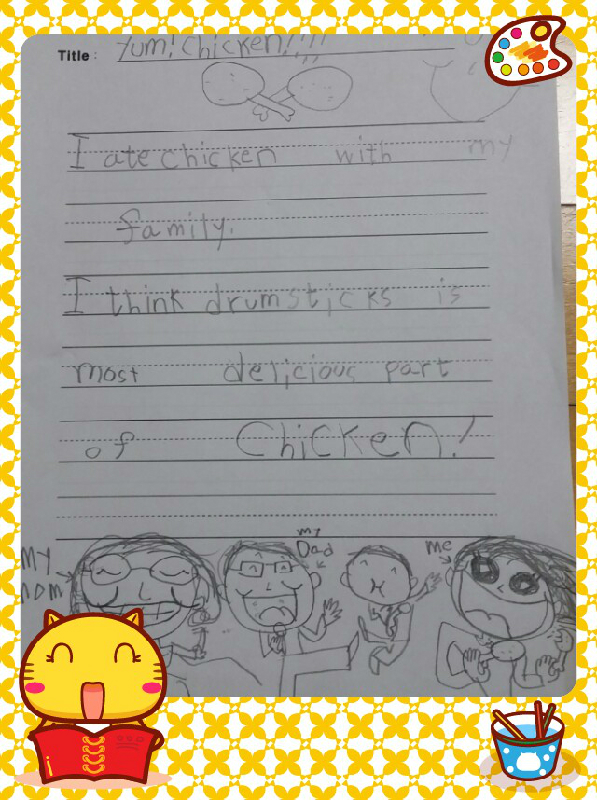 Title : Yum! Chicken!!!!
I ate chicken with my
family.
I think drumsticks is
most delicious part
of Chicken!
my
Dad
me
MY
MOM